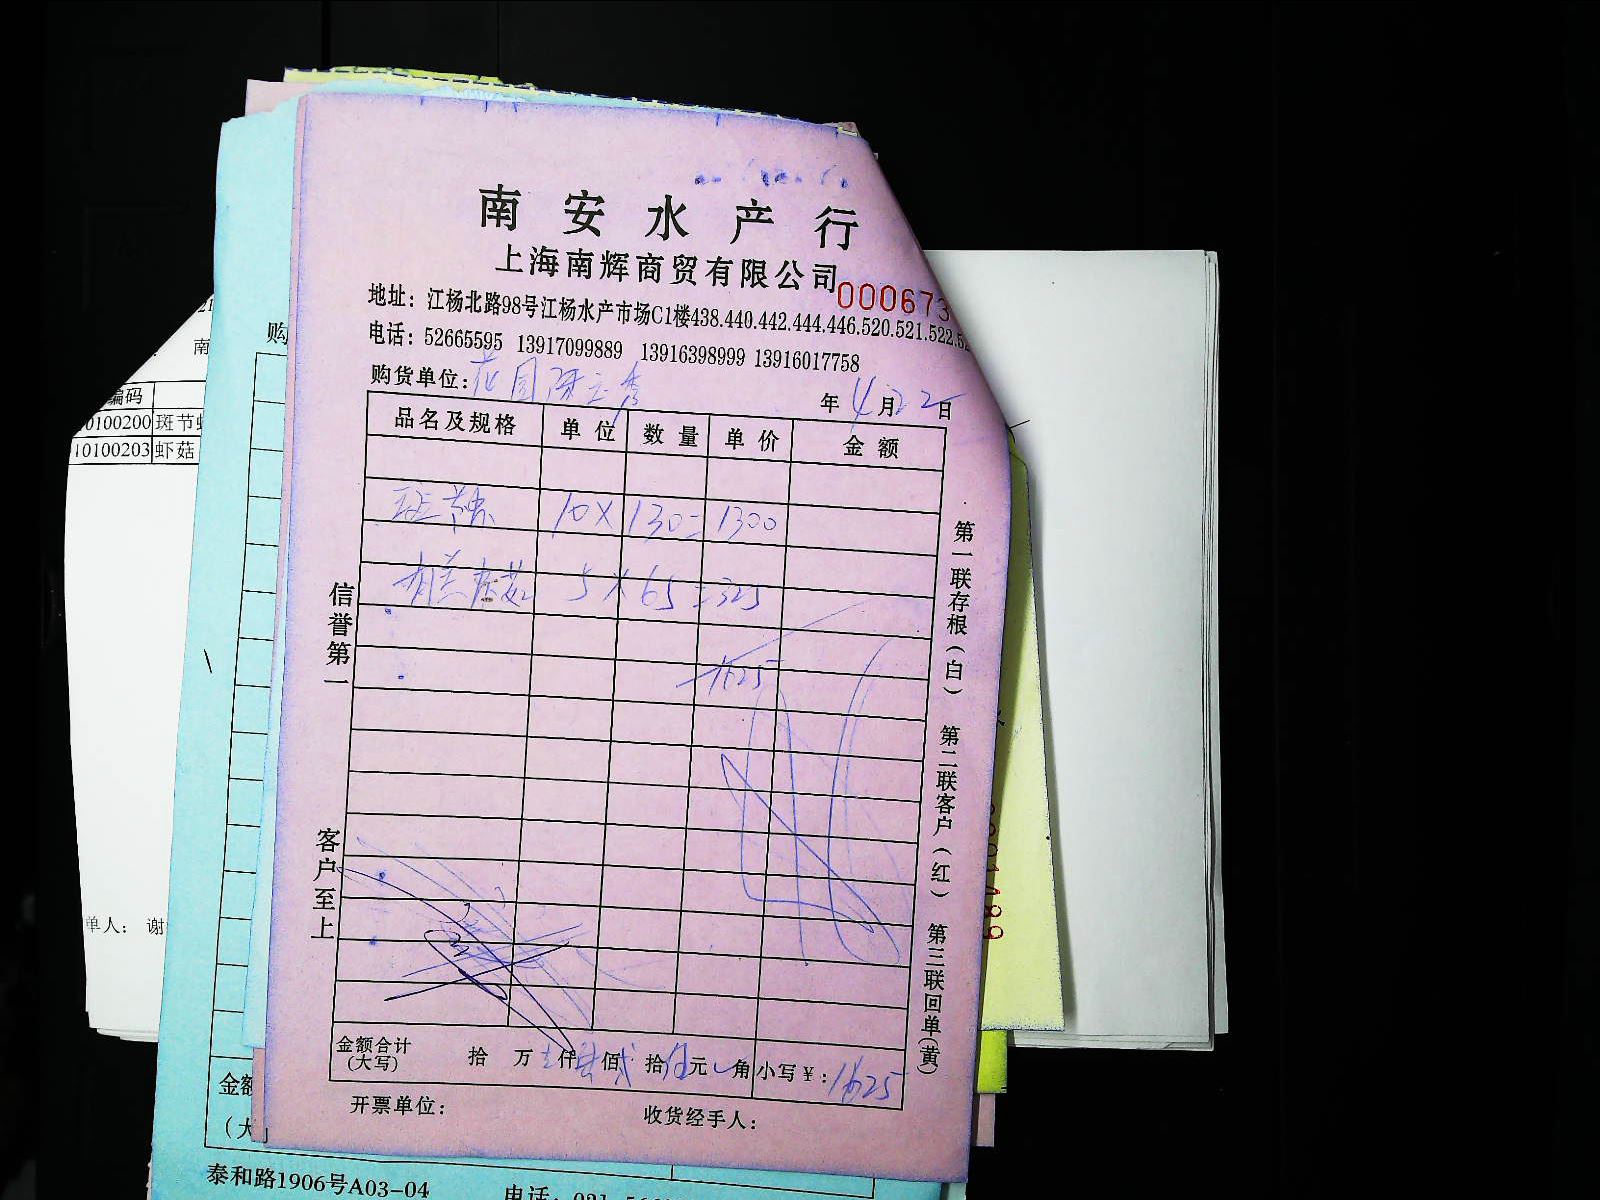 南安水产行
上海南辉商贸有限公司
000673
地址：江杨北路98号江杨水产市场C1楼438.440.442.444.446.520.521.522.52
电话：52665595 13917099889 13916398999 13916017758
购货单位：花园陈立秀
年4月22日
品名及规格 单位 数量 单价 金额
斑节 10×130=1300
虾菇 5×65=325
1625
信誉第一
客户至上
第一联存根（白） 第二联客户（红） 第三联回单（黄）
金额合计 拾 万 仟 佰 拾伍元 角 小写￥：1625
（大写）
开票单位： 收货经手人：
南
编码
0100200 斑节
10100203 虾菇
单人： 谢
购
金额
（大
泰和路1906号A03-04 电话：021-56